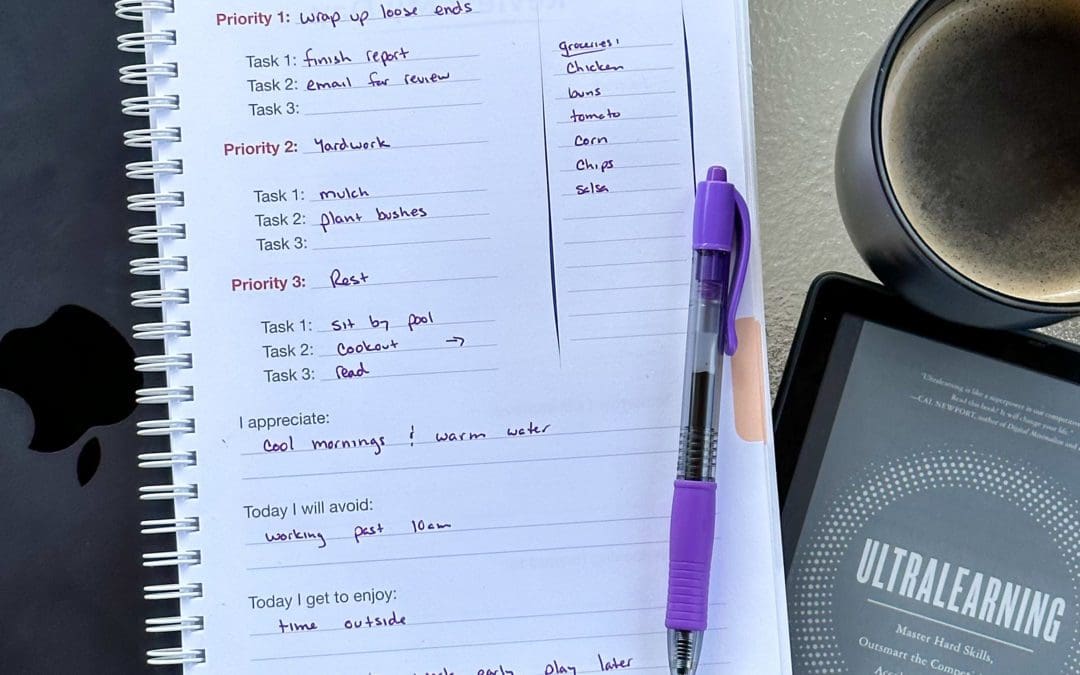 Priority 1: wrap up loose ends
Task 1: finish report
Task 2: email for review
Task 3:
Priority 2: Yardwork
Task 1: mulch
Task 2: plant bushes
Task 3:
Priority 3: Rest
Task 1: sit by pool
Task 2: cookout →
Task 3: read
I appreciate:
cool mornings & warm water
Today I will avoid:
working past 10am
Today I get to enjoy:
time outside
early play later
groceries:
Chicken
buns
tomato
Corn
Chips
salsa
"Ultralearning is like a superpower in our competitive
Read this book! It will change your life."
—CAL NEWPORT, author of Digital Minimalism and
ULTRALEARNING
Master Hard Skills,
Outsmart the